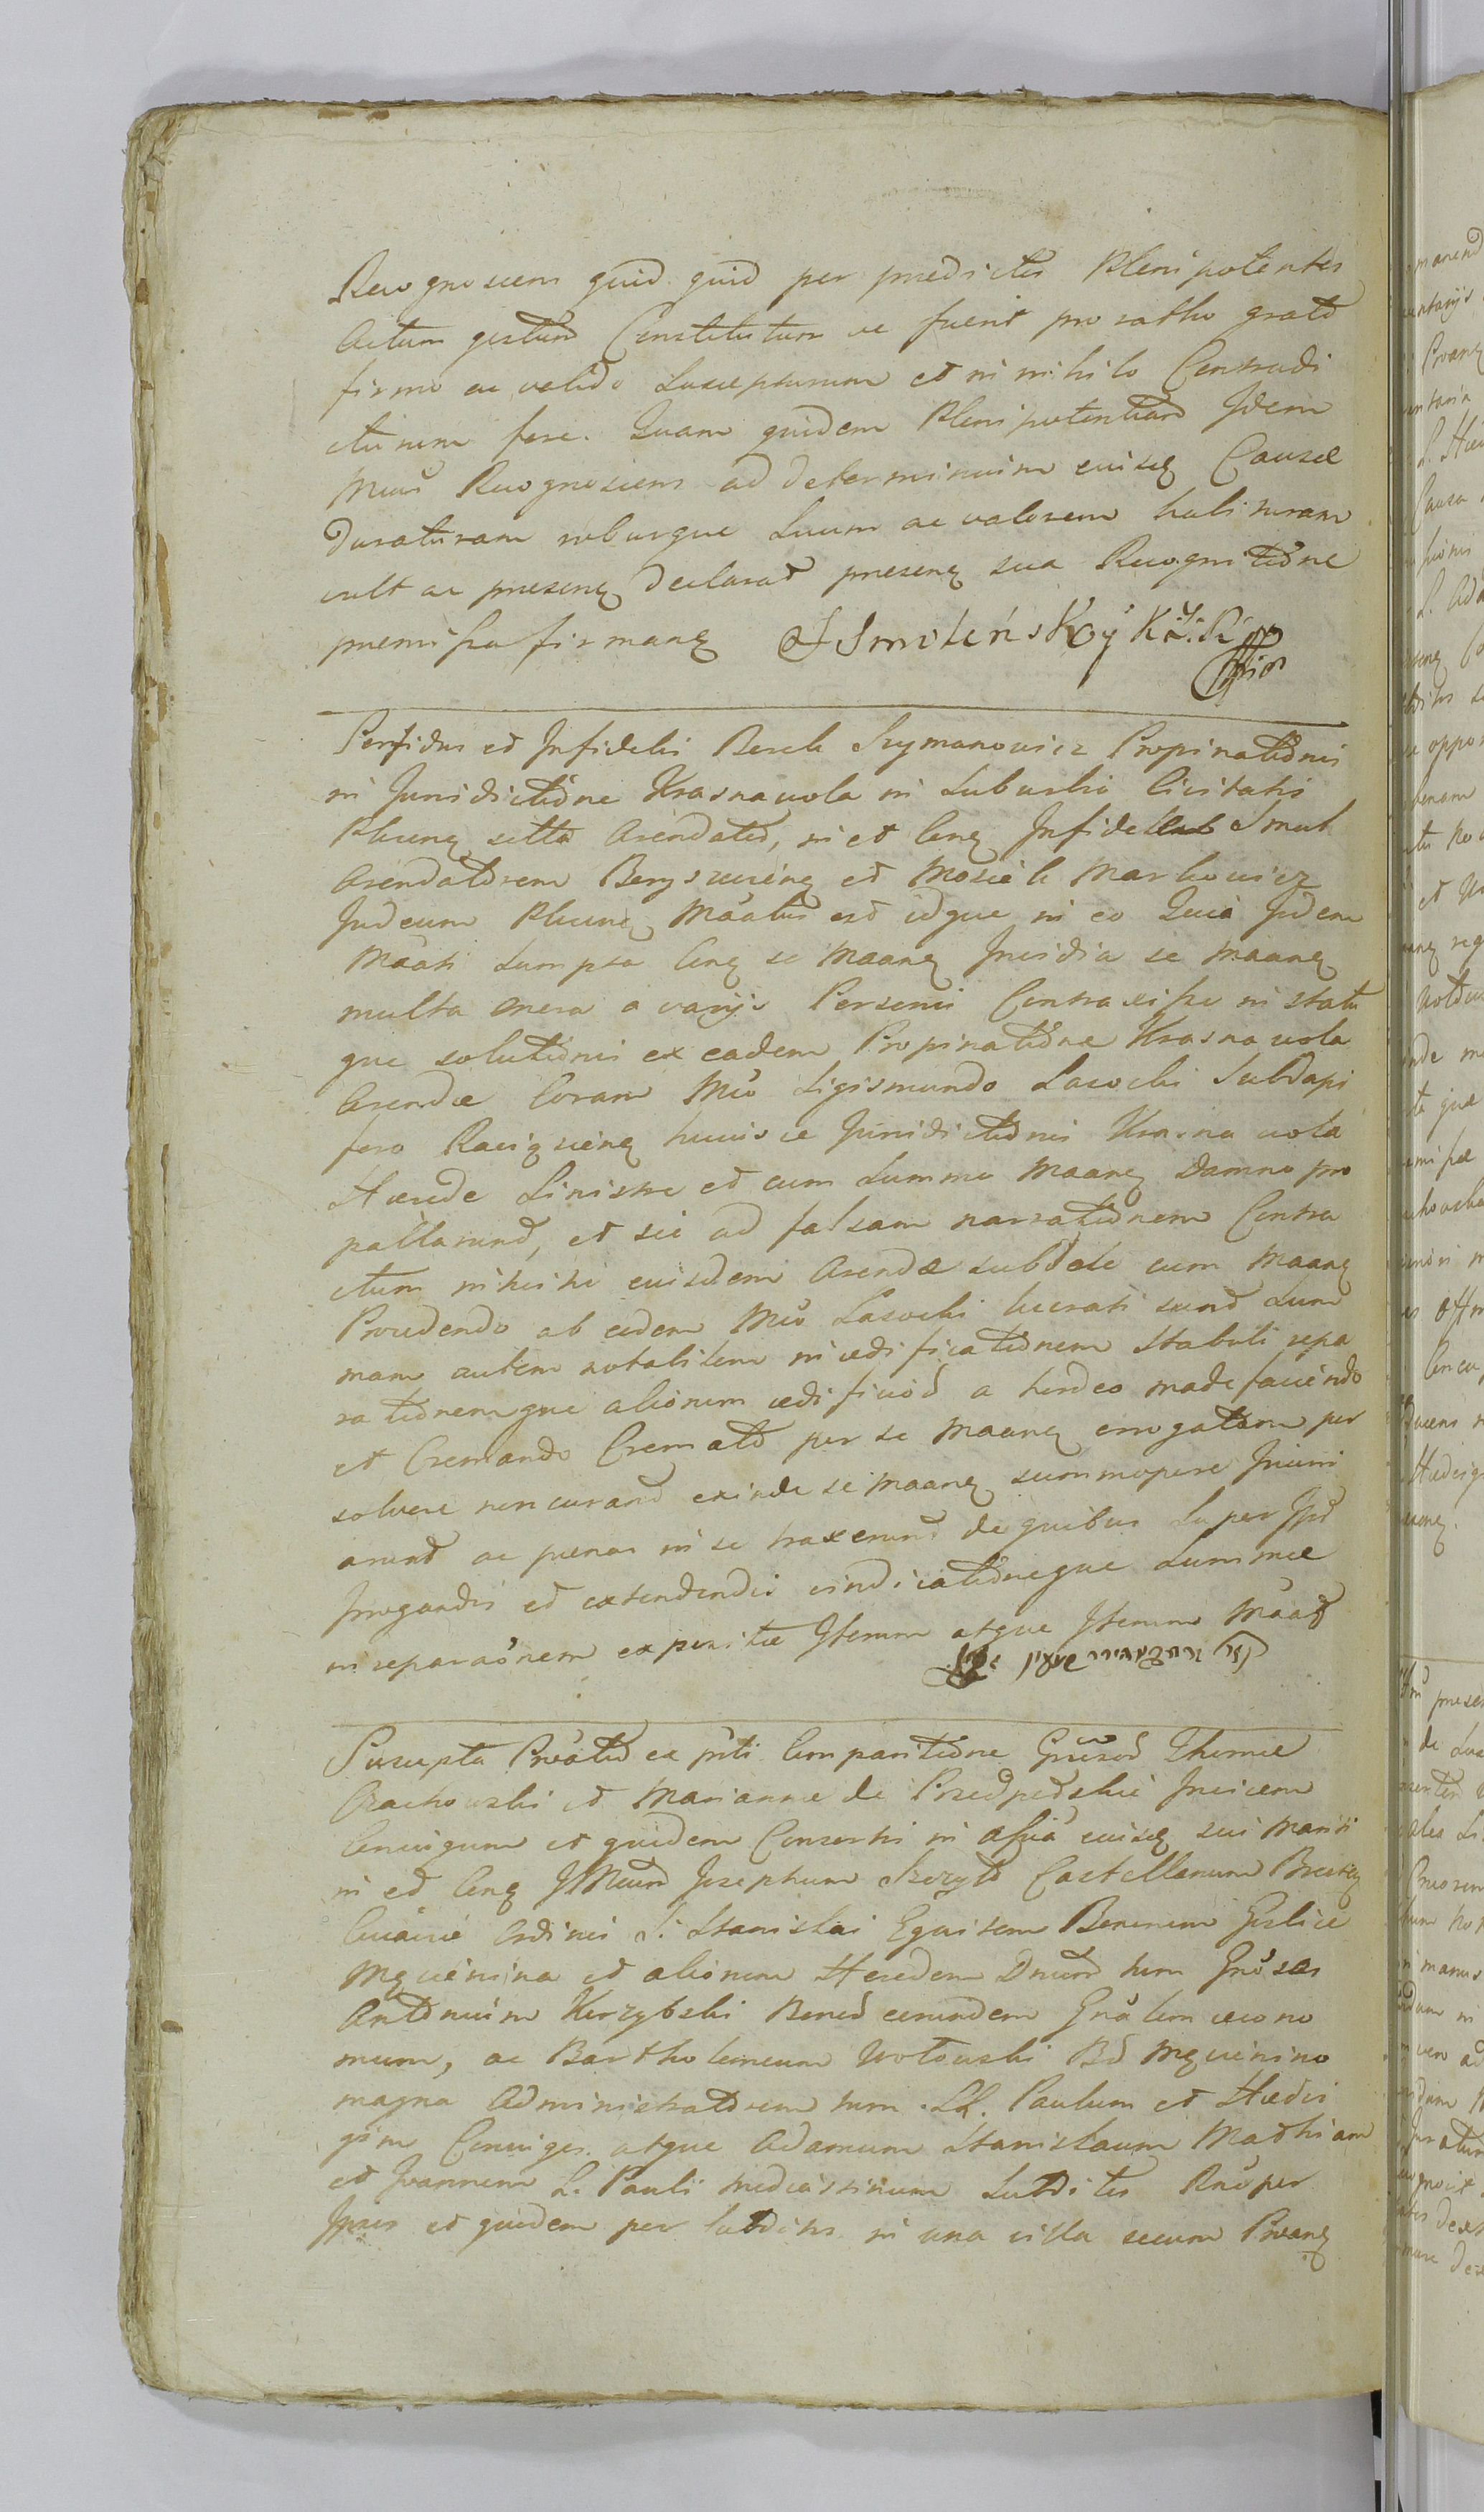 Recognoscens quid quid per prædictos Plenipotentes
Actum gestum Constitutum ve fuerit pro ratho grato
firmo ac valido Suscepturum et in nihilo Contradi
cturum fore. Quam quidem Plenipotentiam Idem
Mcus Recognoscens ad determinium cuisq Causæ
duraturam roburque Suum ac valorem habituram
vult ac præsenq declarat præsenq sua Recognitione
præmissa firmanq J Smoleńskoy
Perfidus et Infidelis Berek Szymanowicz Propinationis
in Jurisdictione Krasnawola in Suburbio Civitatis
Plucenq sitta Arendator, in et Conq Infidelem Smul
Arendatorem et Mosiek Markowicz
Judeum Plucenq Maatus est idque in eo Quia Iidem
Maati Sumpta Conq se Maanq Invidia se Maanq
multa onera a varijs Personis Contraxisse in statu
que solutionis ex eadem Propinatione Krasna wola
Arendæ Coram Mco Sigismundo Lasocki Subdapi
fero huius ce Jurisdictionis Krasna wola
Hærede Sinistre et cum Summo Maanq Damno pro
pallarunt, et sic ad falsam narrationem Contra
ctum eiusdem Arendæ subdole cum Maanq
Procedendo ab eodem Mco Lasocki lucrati sunt Sum
mam autem notabilem in ædificationem Stabuli repa
rationemque aliorum ædificiod a hordeo madefaciendo
et Cremando Cremato per se Maanq errogatam per
solvere non curant exinde se Maanq summopere Iniuri
arunt ac pœnas in se traxerunt de quibus Super Ipsis
Irrogandis et extendendis vindicationeque Summæ
in reparaonem expositæ Iterum atque Iterum Maat
Suscepta Proatio ex pti Comparitione Gnrsod Thomæ
Orachowski et Marianne de Invicem
Coniugum et quidem Consortis in assia cuisq sui Mariti
in et Conq Illmum Josephum Castellanum
Ordinis S. Stanislai Equitem Bonorum
et aliorum Heredem Dnum tum Gnosos
Antonium Korzybski Bonod eorundem Gnalem œcono
mum, ac Bartholomeum Wolowski Bd
magna Administratorem tum LL. Paulum et Hedvi
gim Coniuges atque Adamum Stanislaum Mathiam
et Joannem L. Pauli Subditos Rno per
Ipsos et quidem per Subditos in una villa secum